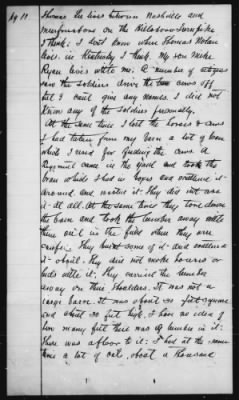 pg 11.
Thomas he lives between Nashville and
Murfreesboro on the Hillsboro Turnpike
I think. I dont know where Thomas Nolan
lives in Kentucky I think. My son Mike
Ryan lives with me. A number of niggers
saw the soldiers drive the two cows off
but I cant give any names. I did not
know any of the soldiers personally.
At the same time I lost the horses & cows
I had taken from my barn a lot of bran
which I used for feeding the cows. A
Regiment came in the yard and took the
bran which I had in boxes and scattered it
around and wasted it. They did not use
it at all. At the same time they tore down
the barn and took the lumber away with
them out in the field where they were
camping. They burnt some of it and scattered
it about. They did not make houses or
beds with it. They carried the lumber
away on their shoulders. It was not a
large barn. It was about 30 feet square
and about 30 feet high. I have no idea of
how many feet there was of lumber in it.
There was a floor to it. I had at the same
time a lot of oats, about a thousand